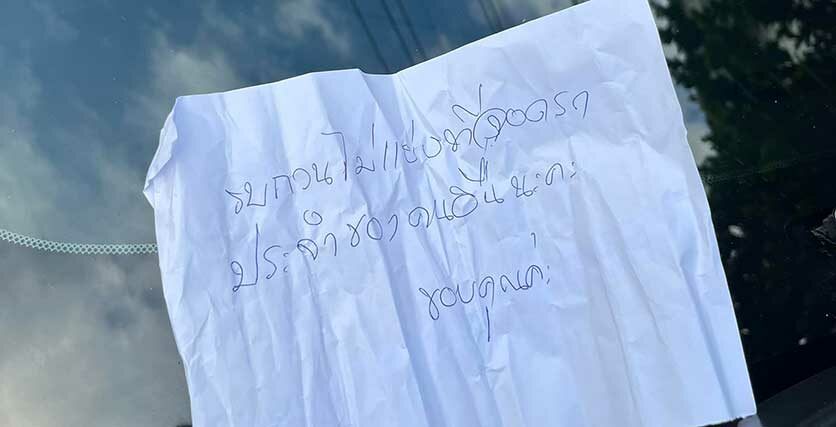 รบกวนไม่แย่งที่จอดรถ
ประจำของคนอื่นนะคะ
ขอบคุณค่ะ